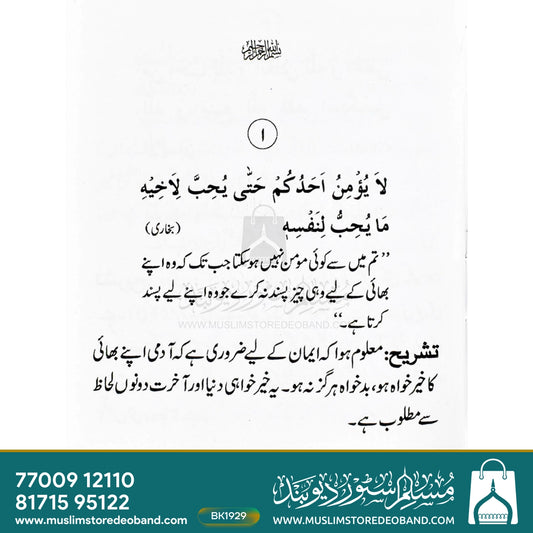 بسم الله الرحمن الرحیم
۱
لاَ يُؤْمِنُ اَحَدُكُمْ حَتّٰى يُحِبَّ لِاَخِيْهِ
مَا يُحِبُّ لِنَفْسِهٖ (بخاری)
’’تم میں سے کوئی مومن نہیں ہوسکتا جب تک کہ وہ اپنے
بھائی کے لیے وہی چیز پسند نہ کرے جو وہ اپنے لیے پسند
WWW.MUSLIMSTOREDEOBAND.COM
کرتا ہے۔‘‘
تشریح: معلوم ہوا کہ ایمان کے لیے ضروری ہے کہ آدمی اپنے بھائی
کا خیرخواہ ہو، بدخواہ ہرگز نہ ہو۔ یہ خیرخواہی دنیا اور آخرت دونوں لحاظ
سے مطلوب ہے۔
77009 12110
81715 95122
www.muslimstoredeoband.com
BK1929
مسلم سٹور دیوبند
WWW.MUSLIMSTOREDEOBAND.COM